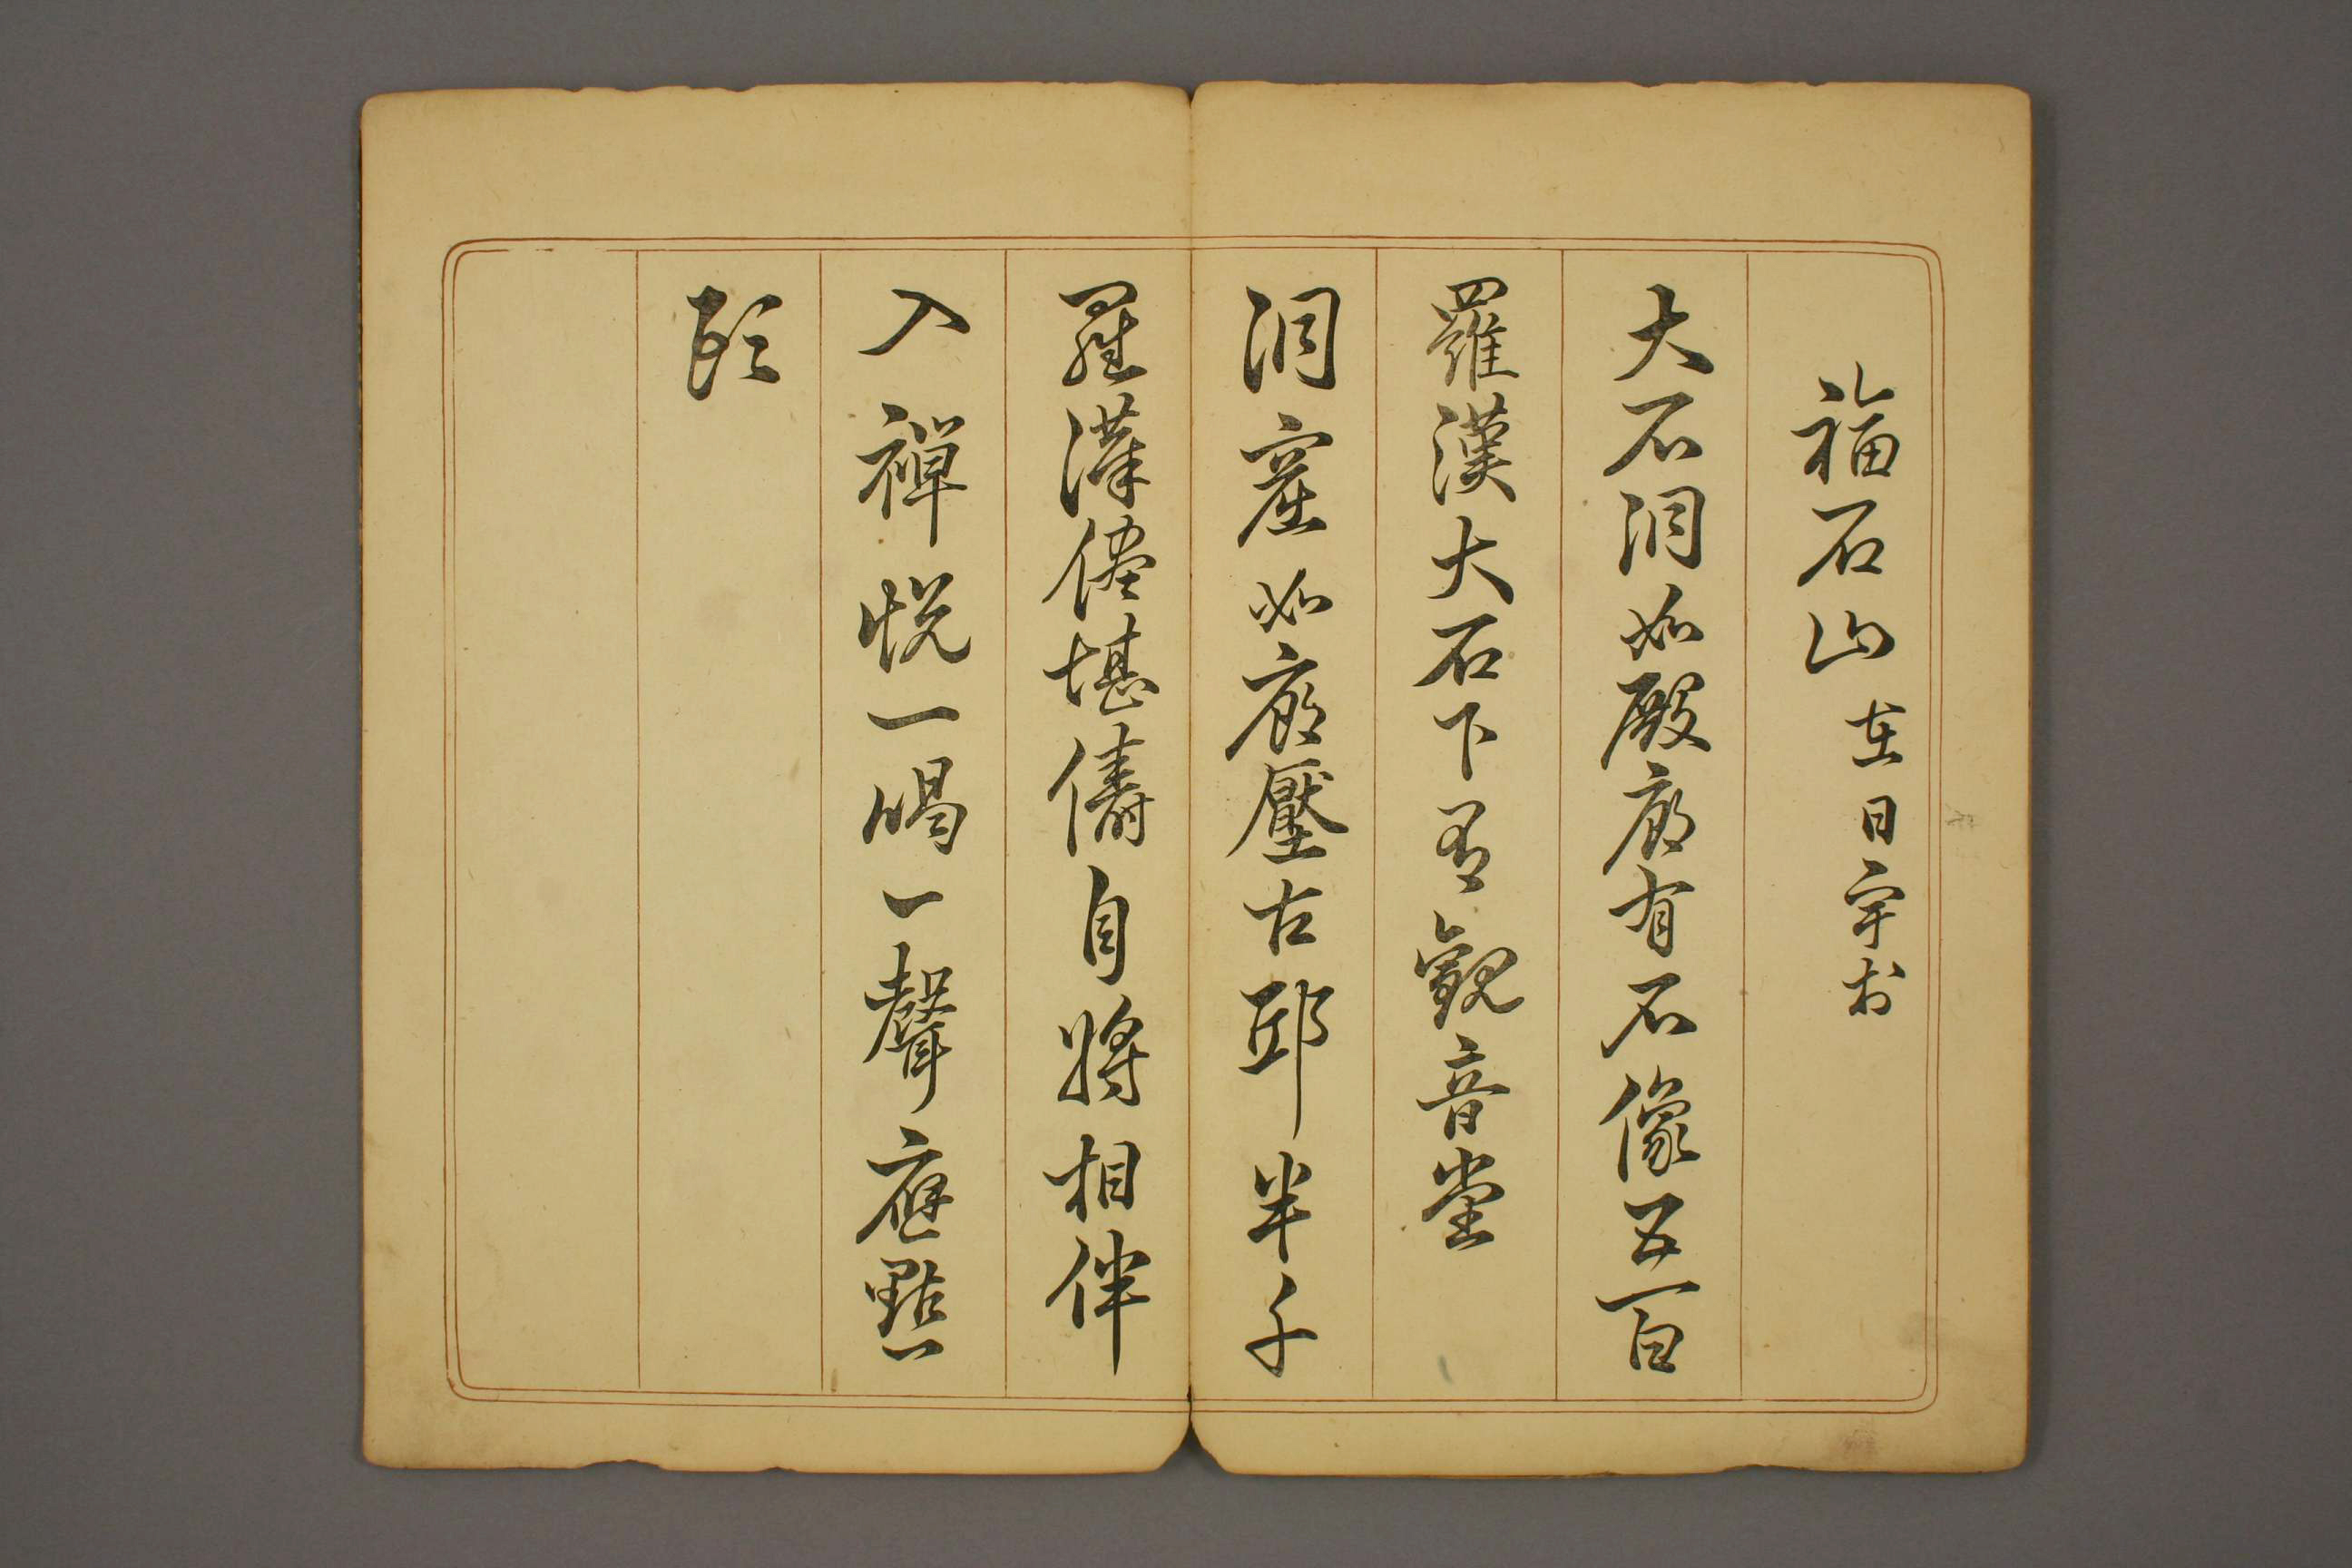 福石山 在日宇村
大石洞如殿廊有石像五百
羅漢大石下有觀音堂
洞窟如廊壓古邱半千
羅漢儘堪儔自將相伴
入禪悅一喝一聲應點
頭